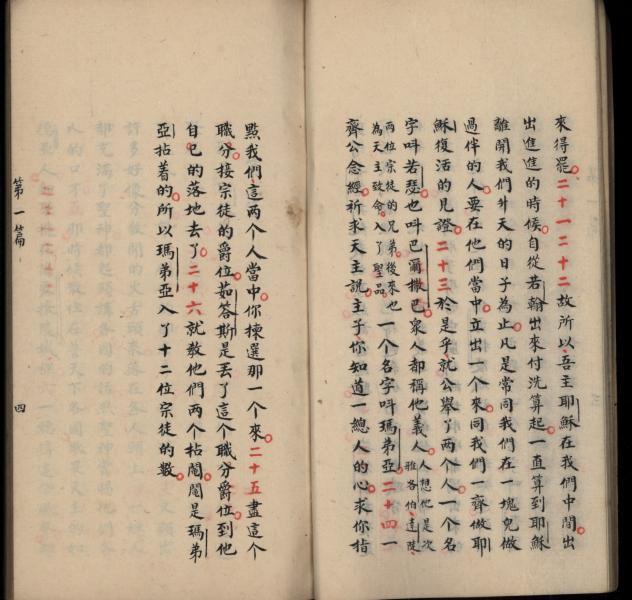 來得罷二十一二十二故所以吾主耶穌在我們中間出
出進進的時候自從若翰出來付洗算起一直算到耶穌
離開我們升天的日子為止凡是常同我們在一塊兒做
過伴的人要在他們當中立出一个來同我們一齊做耶
穌復活的見證二十三於是乎就公舉了兩个人一个名
字叫若瑟也叫巴爾撒巴衆人都稱他義人人想他是次
雅各伯達陡
兩位宗徒的兄弟後來也
為天主致命入了聖品一个名字叫瑪弟亞二十四一
齊公念經祈求天主説主子你知道一總人的心求你指
點我們這两个人當中你揀選那一个來二十五盡這个
職分接宗徒的爵位茹答斯是丟了這个職分爵位到他
自己的落地去了二十六就教他們两个拈鬮鬮是瑪弟
亞拈着的所以瑪弟亞入了十二位宗徒的數
第一篇
四